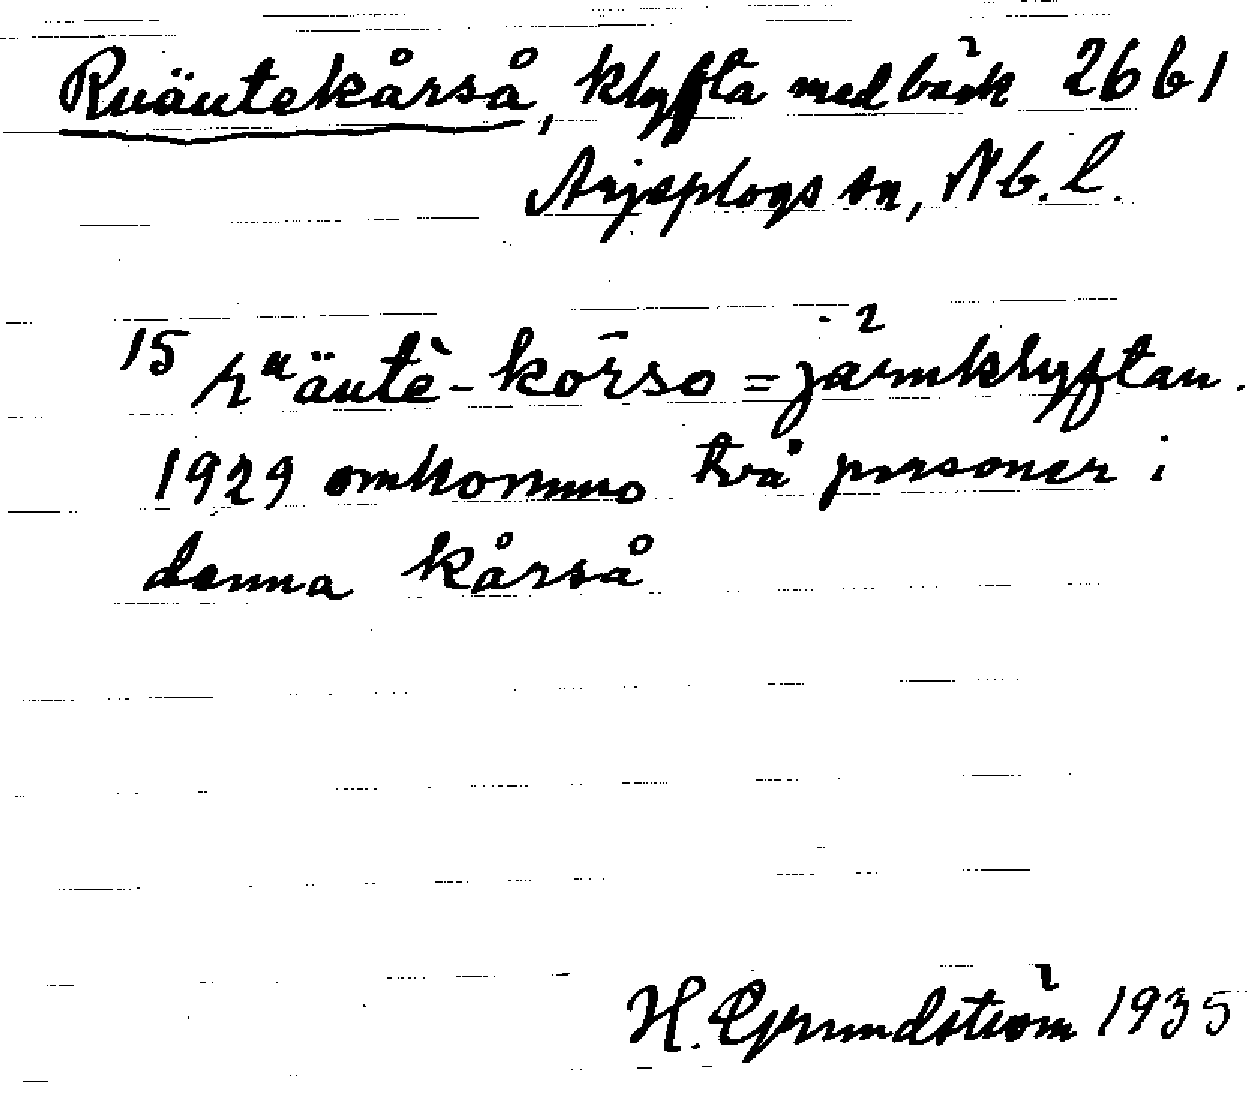 Ruäutekårså, klyfta med bäck 26 b 1
Arjeplogs sn, Nb. l.
15 rᵘäutè-kōrso = järnklyftan.
1929 omkommo två personer i
denna kårså
H. Grundström 1935